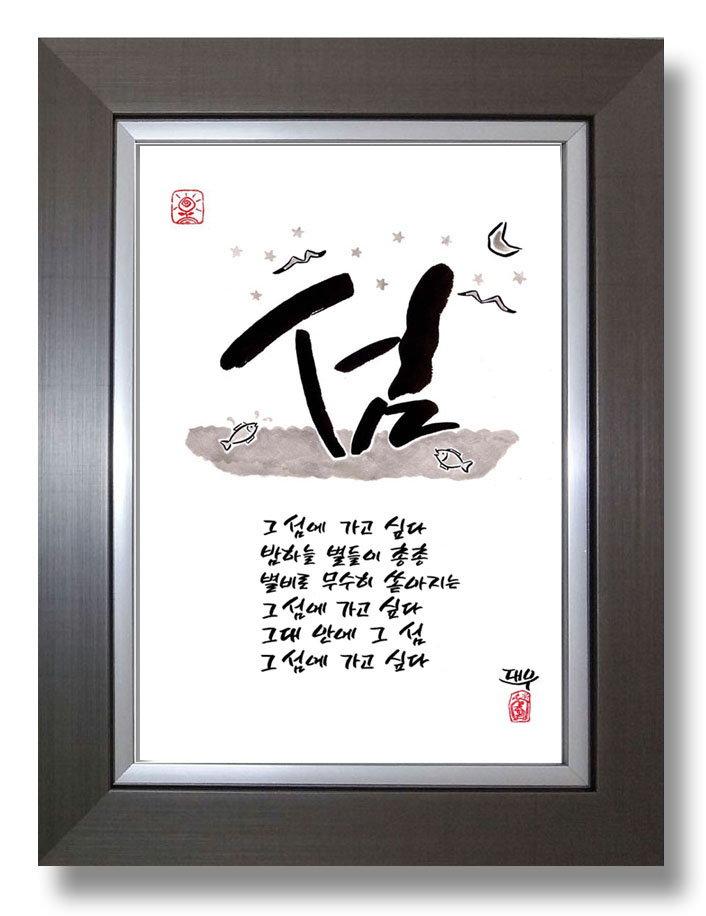 섬
그 섬에 가고 싶다
밤하늘 별들이 총총
별비로 무수히 쏟아지는
그 섬에 가고 싶다
그대 안에 그 섬
그 섬에 가고 싶다
대우